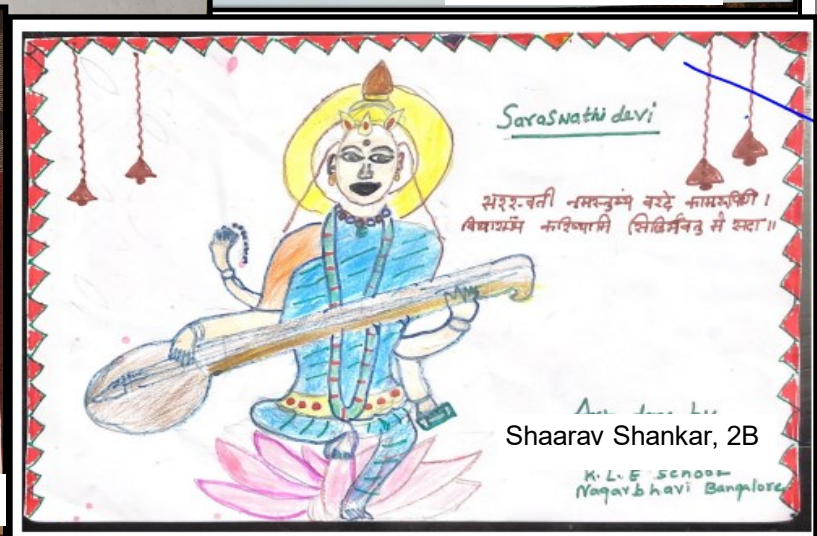 Saraswathi devi
सरस्वती नमस्तुभ्यं वरदे कामरूपिणी।
विद्यारम्भं करिष्यामि सिद्धिर्भवतु मे सदा॥
Shaarav Shankar, 2B
K.L.E SCHOOL
Nagarbhavi Bangalore